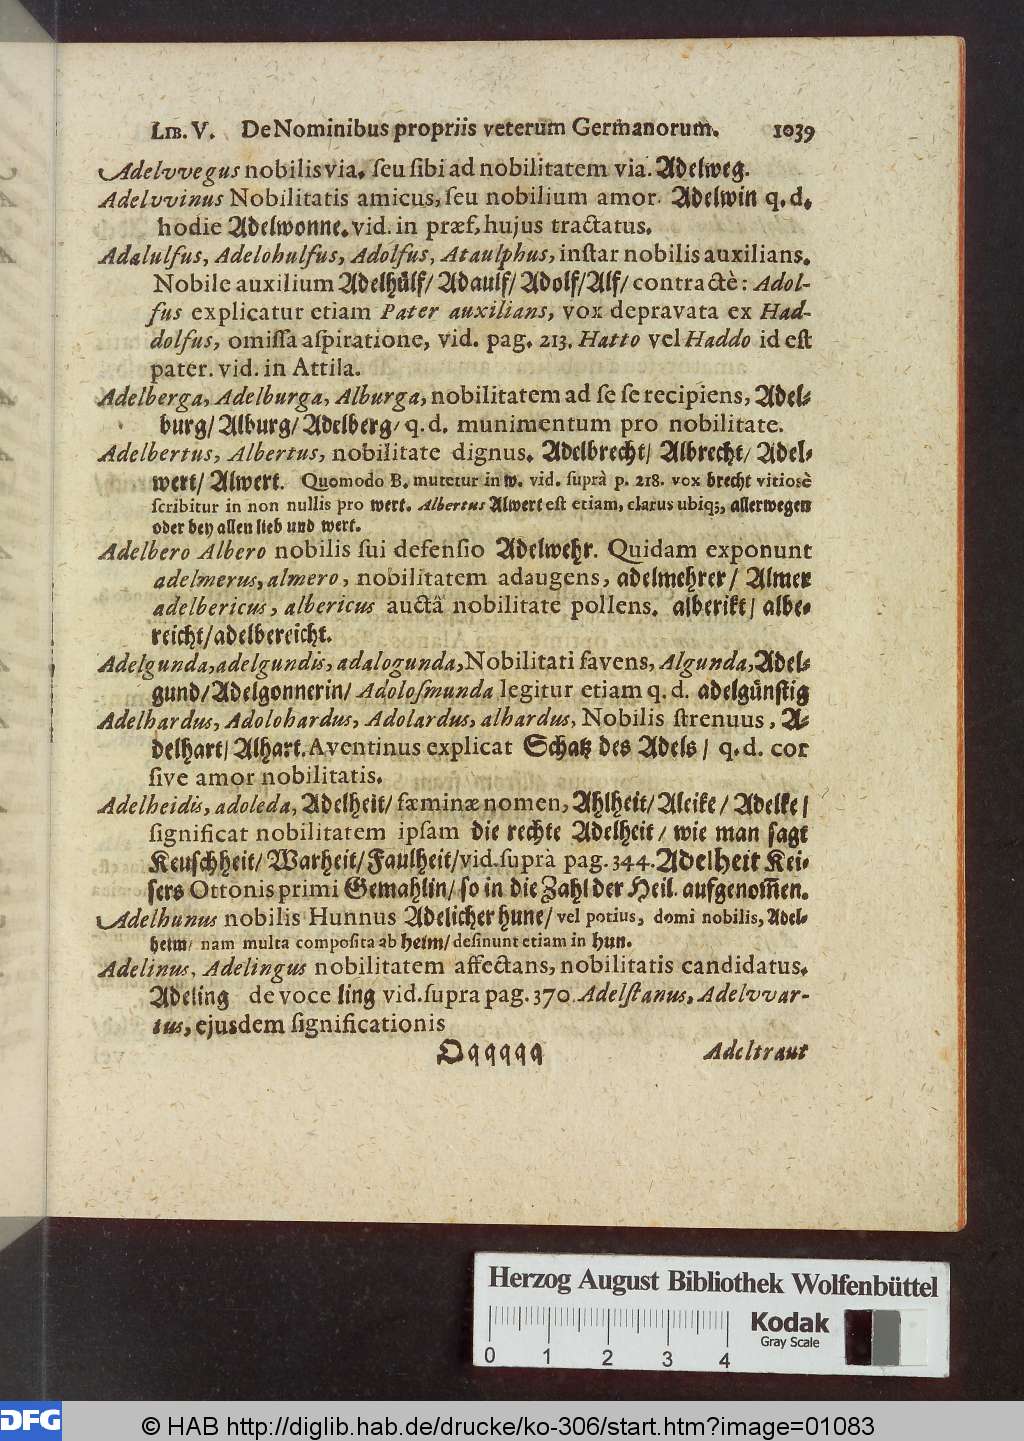 LIB. V. De Nominibus propriis veterum Germanorum. 1039
Adelvvegus nobilis via, seu sibi ad nobilitatem via. Adelweg.
Adelvvinus Nobilitatis amicus, seu nobilium amor. Adelwin q. d.
hodie Adelwonne. vid. in præf, hujus tractatus.
Adalulfus, Adelohulfus, Adolfus, Ataulphus, instar nobilis auxilians.
Nobile auxilium Adelhülf/ Adaulf/ Adolf/ Alf/ contractè: Adol-
fus explicatur etiam Pater auxilians, vox depravata ex Had-
dolfus, omissa aspiratione, vid. pag. 213. Hatto vel Haddo id est
pater. vid. in Attila.
Adelberga, Adelburga, Alburga, nobilitatem ad se se recipiens, Adel-
burg/ Alburg/ Adelberg/ q. d. munimentum pro nobilitate.
Adelbertus, Albertus, nobilitate dignus. Adelbrecht/ Albrecht/ Adel-
wert/ Alwert. Quomodo B. mutetur in w. vid. suprà p. 218. vox brecht vitiosè
scribitur in non nullis pro wert. Albertus Alwert est etiam, clarus ubiq;, allerwegen
oder bey allen lieb und wert.
Adelbero Albero nobilis sui defensio Adelwehr. Quidam exponunt
adelmerus, almero, nobilitatem adaugens, adelmehrer/ Almer
adelbericus, albericus auctâ nobilitate pollens. alberikt/ albe-
reicht/ adelbereicht.
Adelgunda, adelgundis, adalogunda, Nobilitati favens, Algunda, Adel-
gund/ Adelgonnerin/ Adolosmunda legitur etiam q. d. adelgünstig
Adelhardus, Adolohardus, Adolardus, alhardus, Nobilis strenuus, A-
delhart/ Alhart. Aventinus explicat Schatz des Adels/ q. d. cor
sive amor nobilitatis.
Adelheidis, adoleda, Adelheit/ fæminæ nomen, Ahlheit/ Aleike/ Adelke/
significat nobilitatem ipsam die rechte Adelheit/ wie man sagt
Keuschheit/ Warheit/ Faulheit/ vid. suprà pag. 344. Adelheit Kei-
sers Ottonis primi Gemahlin/ so in die Zahl der Heil. aufgenom̃en.
Adelhunus nobilis Hunnus Adelicher hune/ vel potius, domi nobilis, Adel-
heim/ nam multa composita ab heim/ desinunt etiam in hun.
Adelinus, Adelingus nobilitatem affectans, nobilitatis candidatus.
Adeling de voce ling vid. supra pag. 370. Adelstanus, Adelvvar-
ius, ejusdem significationis
Qqqqqq Adeltraut
Herzog August Bibliothek Wolfenbüttel
Kodak
Gray Scale
0 1 2 3 4
DFG © HAB http://diglib.hab.de/drucke/ko-306/start.htm?image=01083